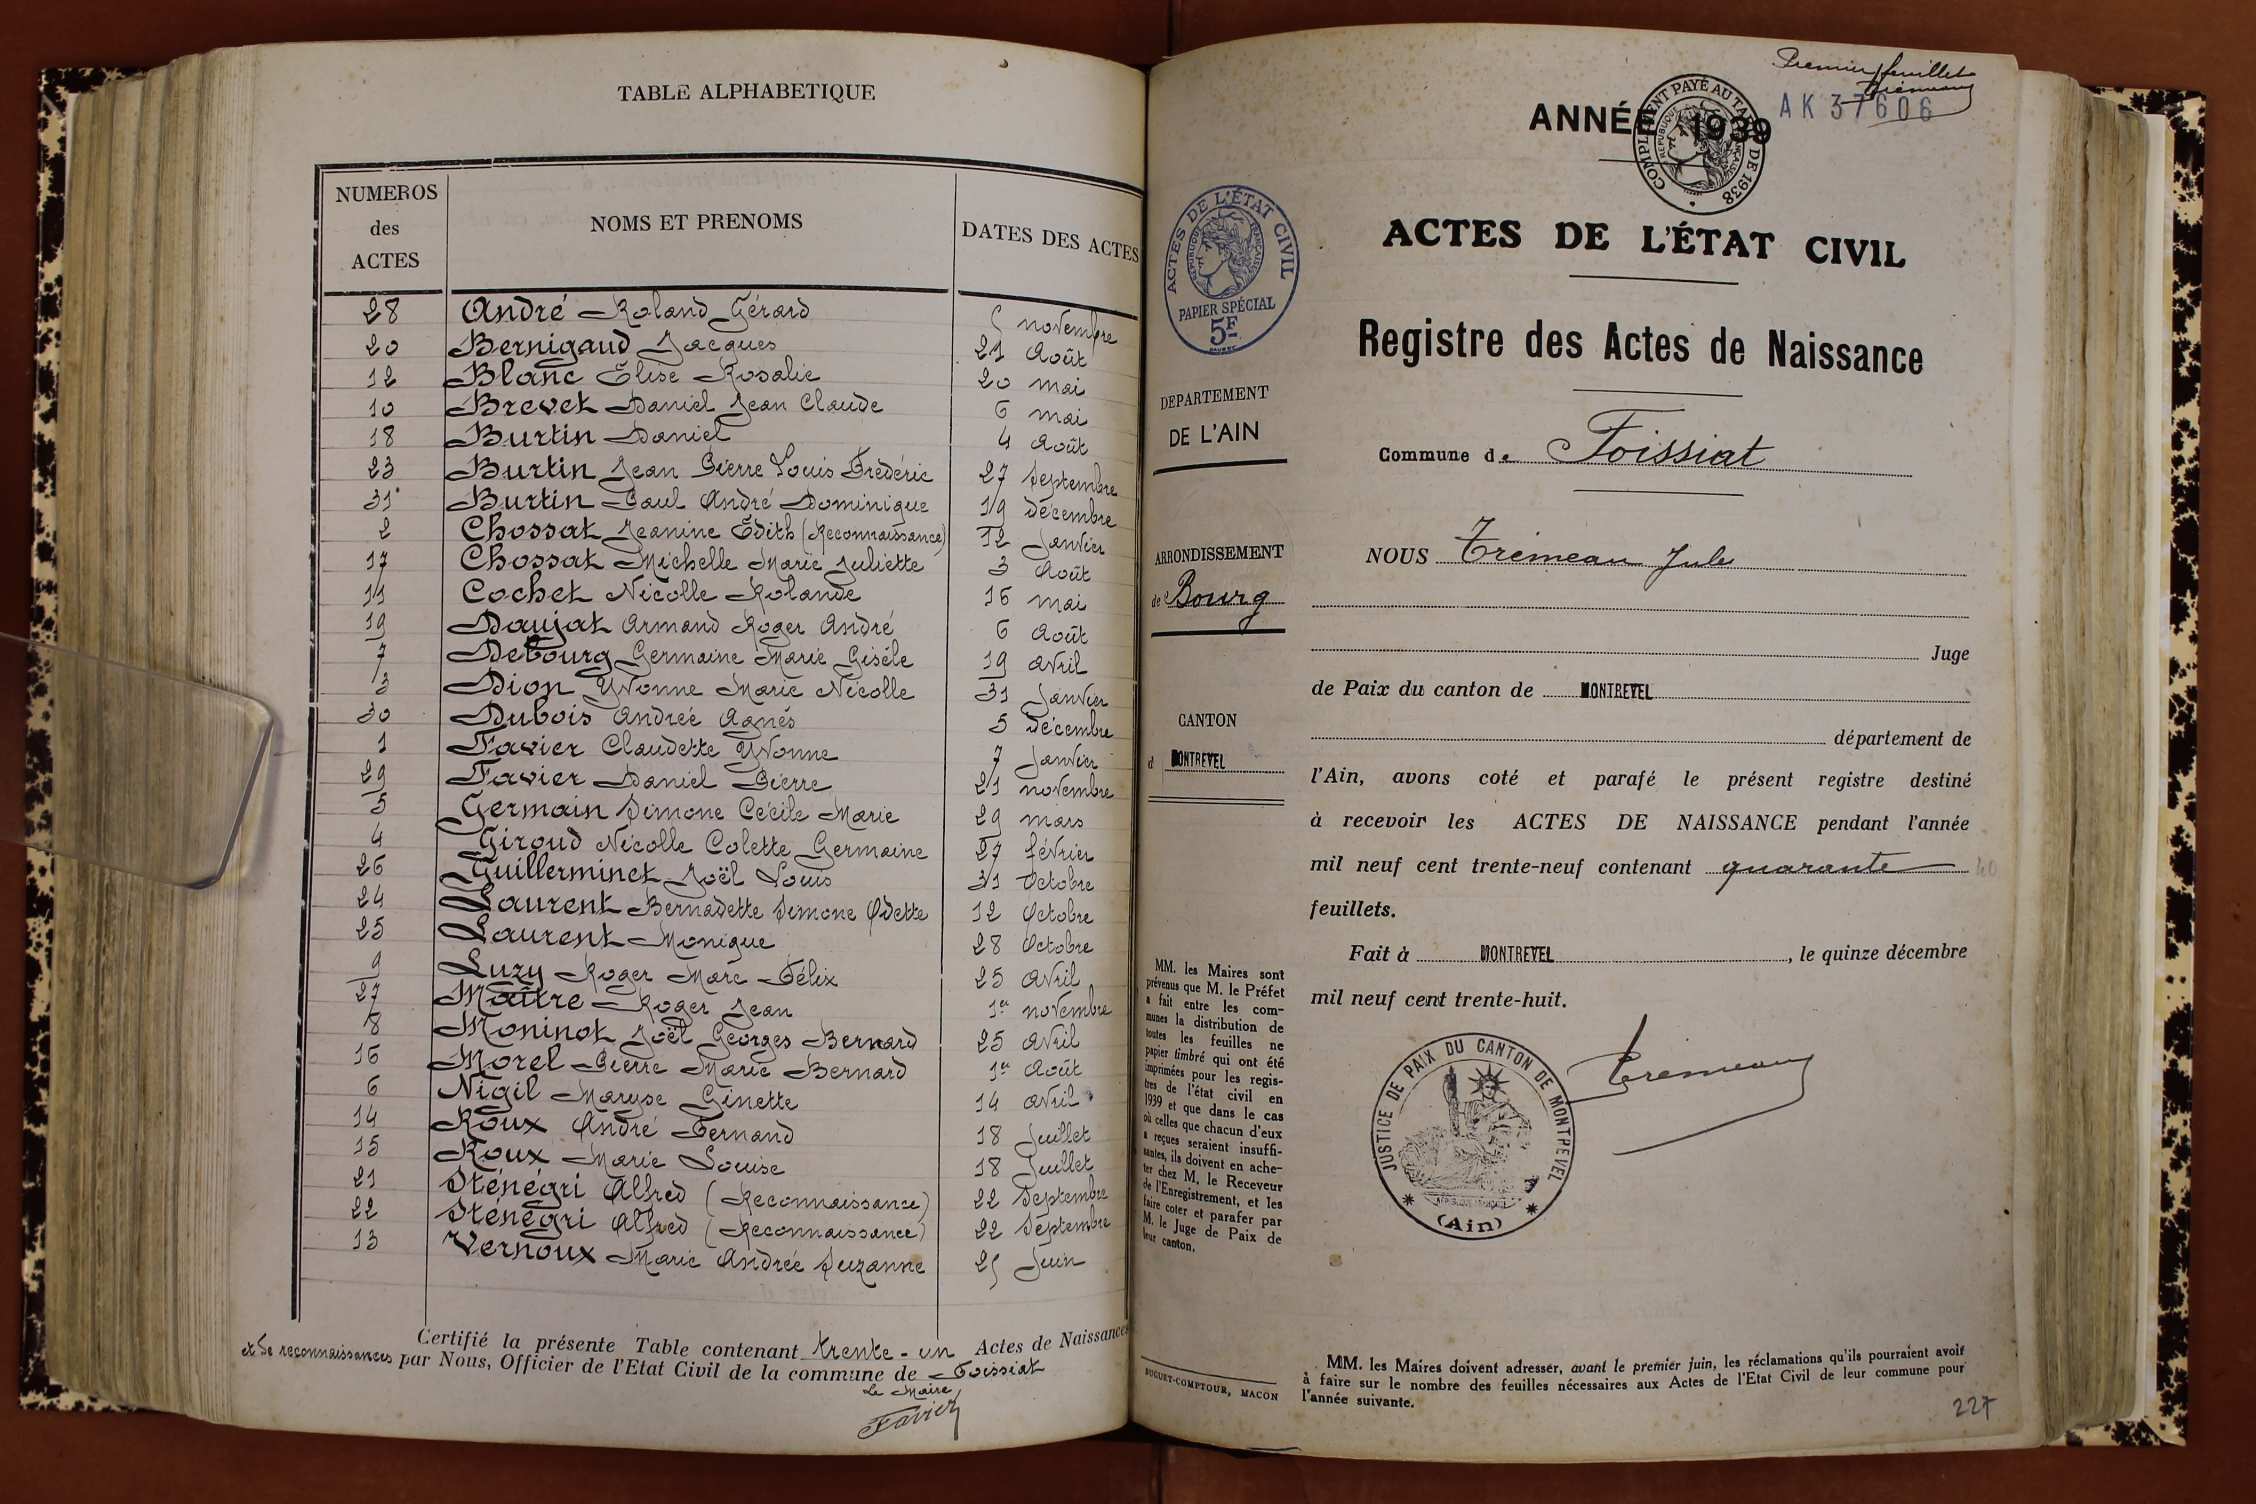 TABLE ALPHABETIQUE
NUMEROS des ACTES NOMS ET PRENOMS DATES DES ACTES
28 André Roland Gérard 5 novembre
20 Bernigaud Jacques 21 Août
12 Blanc Elise Rosalie 20 mai
10 Brevet Daniel Jean Claude 6 mai
18 Burtin Daniel 4 Août
23 Burtin Jean Pierre Louis Frédéric 27 Septembre
31 Burtin Paul André Dominique 19 décembre
2 Chossat Jeanine Edith (Reconnaissance) 12 Janvier
17 Chossat Michelle Marie Juliette 3 Août
11 Cochet Nicolle Rolande 16 mai
19 Daujat Armand Roger André 6 Août
7 Debourg Germaine Marie Gisèle 19 avril
3 Dion Yvonne Marie Nicolle 31 Janvier
30 Dubois Andrée Agnés 5 décembre
1 Favier Claudette Yvonne 7 Janvier
29 Favier Daniel Pierre 21 novembre
5 Germain Simone Cécile Marie 29 mars
4 Giroud Nicolle Colette Germaine 27 février
26 Guillerminet Joël Louis 31 Octobre
24 Laurent Bernadette Simone Odette 12 Octobre
25 Laurent Monique 28 Octobre
9 Luzy Roger Marc Félix 25 avril
27 Maître Roger Jean 1er novembre
8 Moninot Joël Georges Bernard 25 avril
16 Morel Pierre Marie Bernard 1er Août
6 Nigil Maryse Ginette 14 avril
14 Roux André Fernand 18 Juillet
15 Roux Marie Louise 18 Juillet
21 Sténégri Alfred (Reconnaissance) 22 Septembre
22 Sténégri Alfred (Reconnaissance) 22 Septembre
13 Vernoux Marie Andrée Suzanne 25 Juin
Certifié la présente Table contenant trente-un Actes de Naissances
et de reconnaissances par Nous, Officier de l'Etat Civil de la commune de Foissiat
Le Maire
Favier
Premier feuillet
Trémeau
AK 37606
ANNÉE 1939
COMPLEMENT PAYÉ AU TARIF DE 1938
REPUBLIQUE FRANÇAISE
ACTES DE L'ÉTAT CIVIL
REPUBLIQUE FRANÇAISE
PAPIER SPÉCIAL
5F
DEPARTEMENT
DE L'AIN
ARRONDISSEMENT
de Bourg
CANTON
d MONTREVEL
MM. les Maires sont
prévenus que M. le Préfet
a fait entre les com-
munes la distribution de
toutes les feuilles ne
papier timbré qui ont été
imprimées pour les regis-
tres de l'état civil en
1939 et que dans le cas
où celles que chacun d'eux
a reçues seraient insuffi-
santes, ils doivent en ache-
ter chez M. le Receveur
de l'Enregistrement, et les
faire coter et parafer par
M. le Juge de Paix de
leur canton.
BUGUET-COMPTOUR, MACON
ACTES DE L'ÉTAT CIVIL
Registre des Actes de Naissance
Commune de Foissiat
NOUS Trémeau Jules
Juge
de Paix du canton de MONTREVEL
département de
l'Ain, avons coté et parafé le présent registre destiné
à recevoir les ACTES DE NAISSANCE pendant l'année
mil neuf cent trente-neuf contenant quarante 40
feuillets.
Fait à MONTREVEL, le quinze décembre
mil neuf cent trente-huit.
Trémeau
JUSTICE DE PAIX DU CANTON DE MONTREVEL
(Ain)
MM. les Maires doivent adresser, avant le premier juin, les réclamations qu'ils pourraient avoir
à faire sur le nombre des feuilles nécessaires aux Actes de l'Etat Civil de leur commune pour
l'année suivante.
227